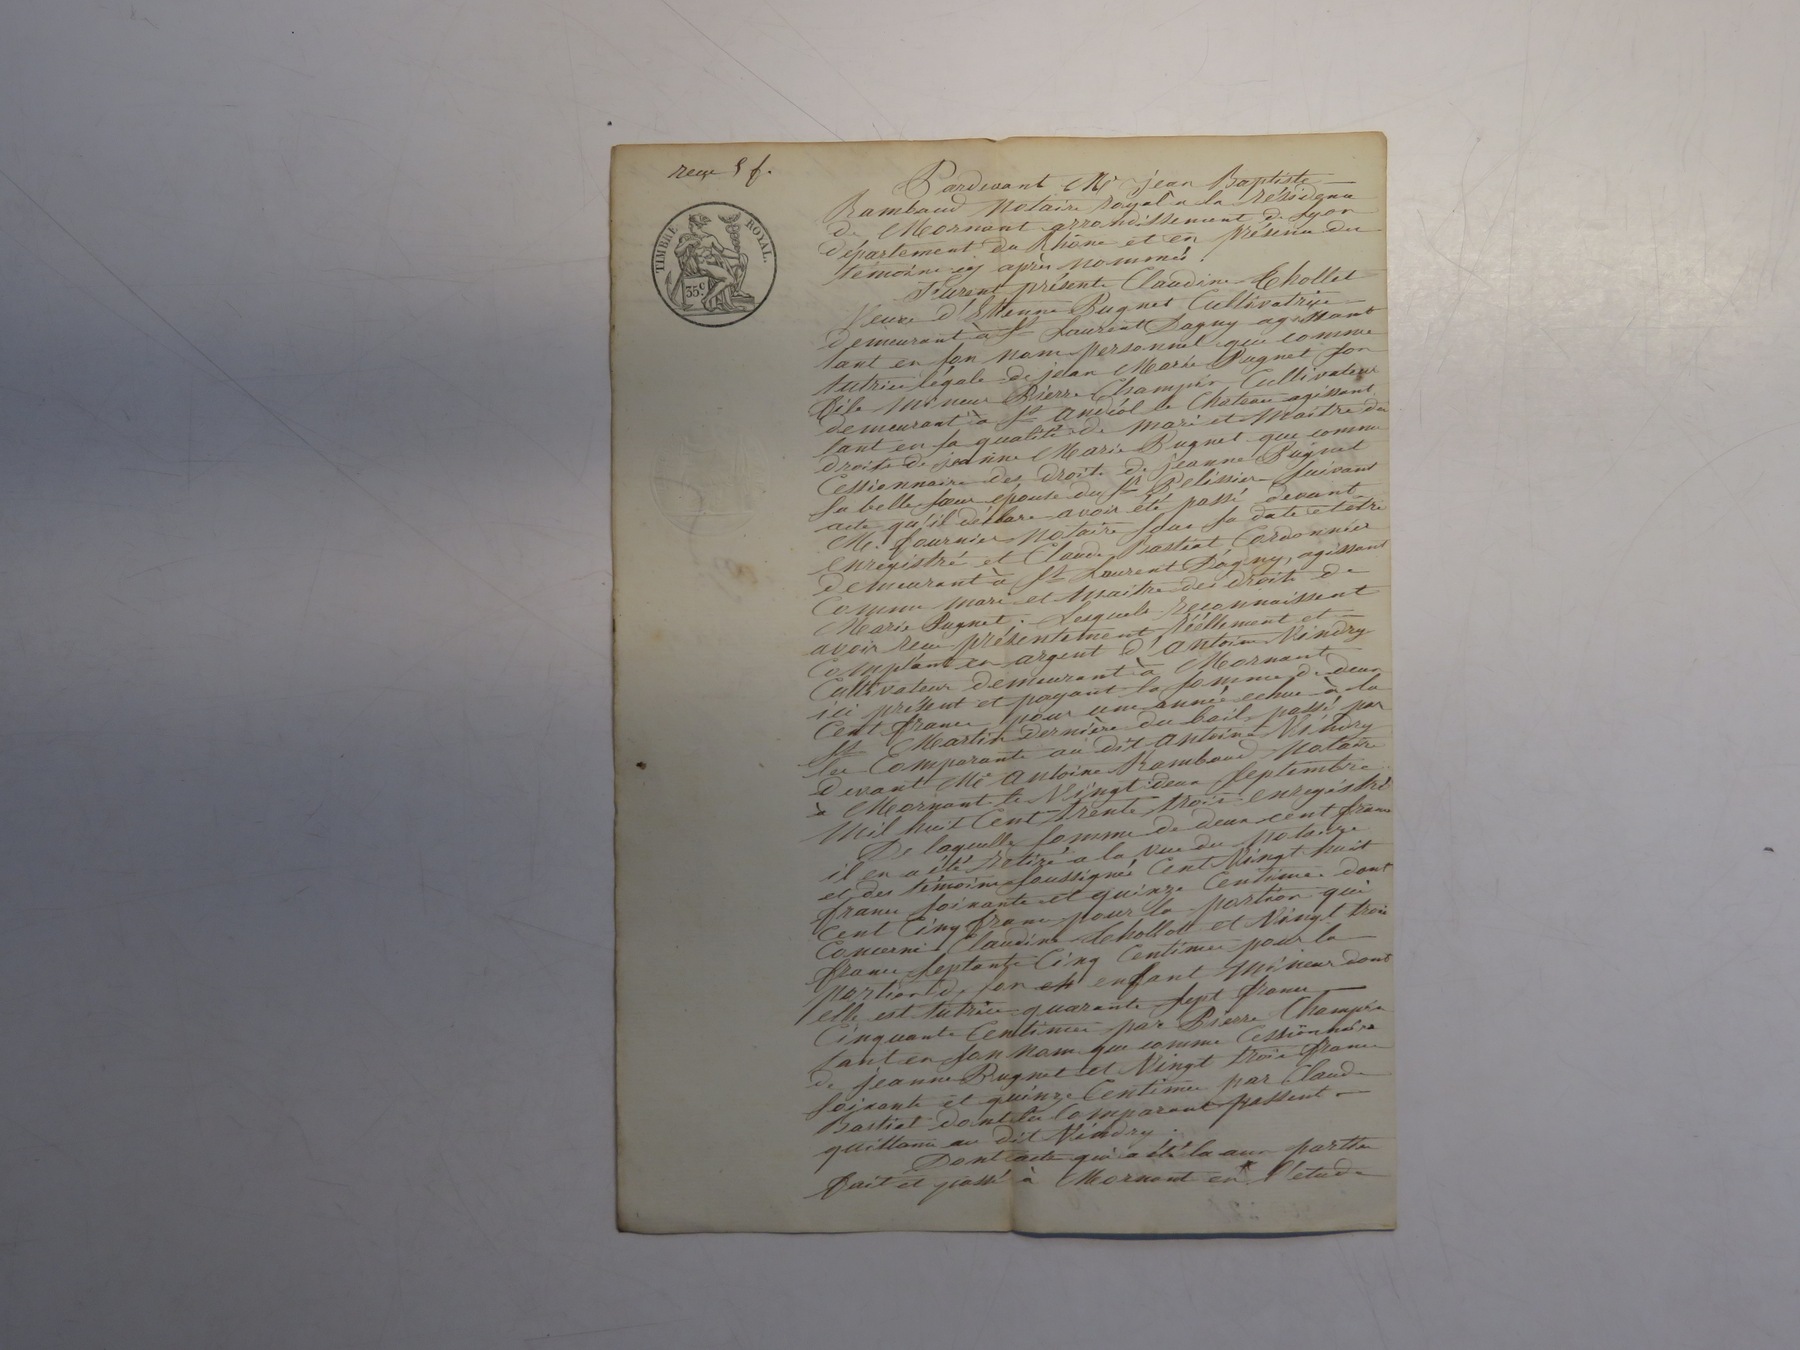 reçu 5 f.
TIMBRE ROYAL.
35c
Pardevant Me jean Baptiste
Rambaud Notaire royal a la résidence
de Mornant arrondissement de Lyon
département du Rhône et en présence des
témoins cy après nommés
Furent présents Claudine Thollet
Veuve d'Ettienne Pugnet Cultivatrice
demeurant à St Laurent Dagny agissant
tant en son nom personnel que comme
tutrice légale de jean Marie Pugnet son
fils mineur Pierre Champin Cultivateur
demeurant à St Andéol le Chateau agissant
tant en sa qualité de mari et maitre des
droits de jeanne Marie Pugnet que comme
Cessionnaire des droits de jeanne Pugnet
sa belle soeur épouse du Sr Pelissier suivant
acte qu'il déclare avoir été passé devant
Me fournier Notaire sous sa date
enregistré et Claude Bastiat Cordonnier
demeurant à St Laurent Dagny, agissant
Comme mari et maitre des droits de
Marie Pugnet. Lesquels reconnaissent
avoir reçu présentement réellement et
Comptant en argent d'Antoine Vindry
Cultivateur demeurant à Mornant
ici présent et payant la somme de deux
Cent francs pour une année echue à la
St Martin dernière du bail passé par
les Comparants au dit Antoine Vindry
devant Me Antoine Rambaud Notaire
à Mornant le Vingt deux Septembre
Mil huit Cent trente trois enregistré
De laquelle somme de deux cent francs
il en a été retiré a la vue du notaire
et des témoins soussignés Cent Vingt huit
francs soixante et quinze Centimes dont
Cent Cinq francs pour la portion qui
Concerne Claudine Thollet et Vingt trois
francs septante Cinq Centimes pour la
portion de son enfant Mineur dont
elle est tutrice quarante sept francs
Cinquante Centimes par Pierre Champin
tant en son nom que comme Cessionnaire
de jeanne Pugnet et Vingt trois francs
soixante et quinze Centimes par Claude
Bastiat dont les Comparants passent
quittance au dit Vindry.
Dont acte qui a été lu aux parties
fait et passé à Mornant en l'etude